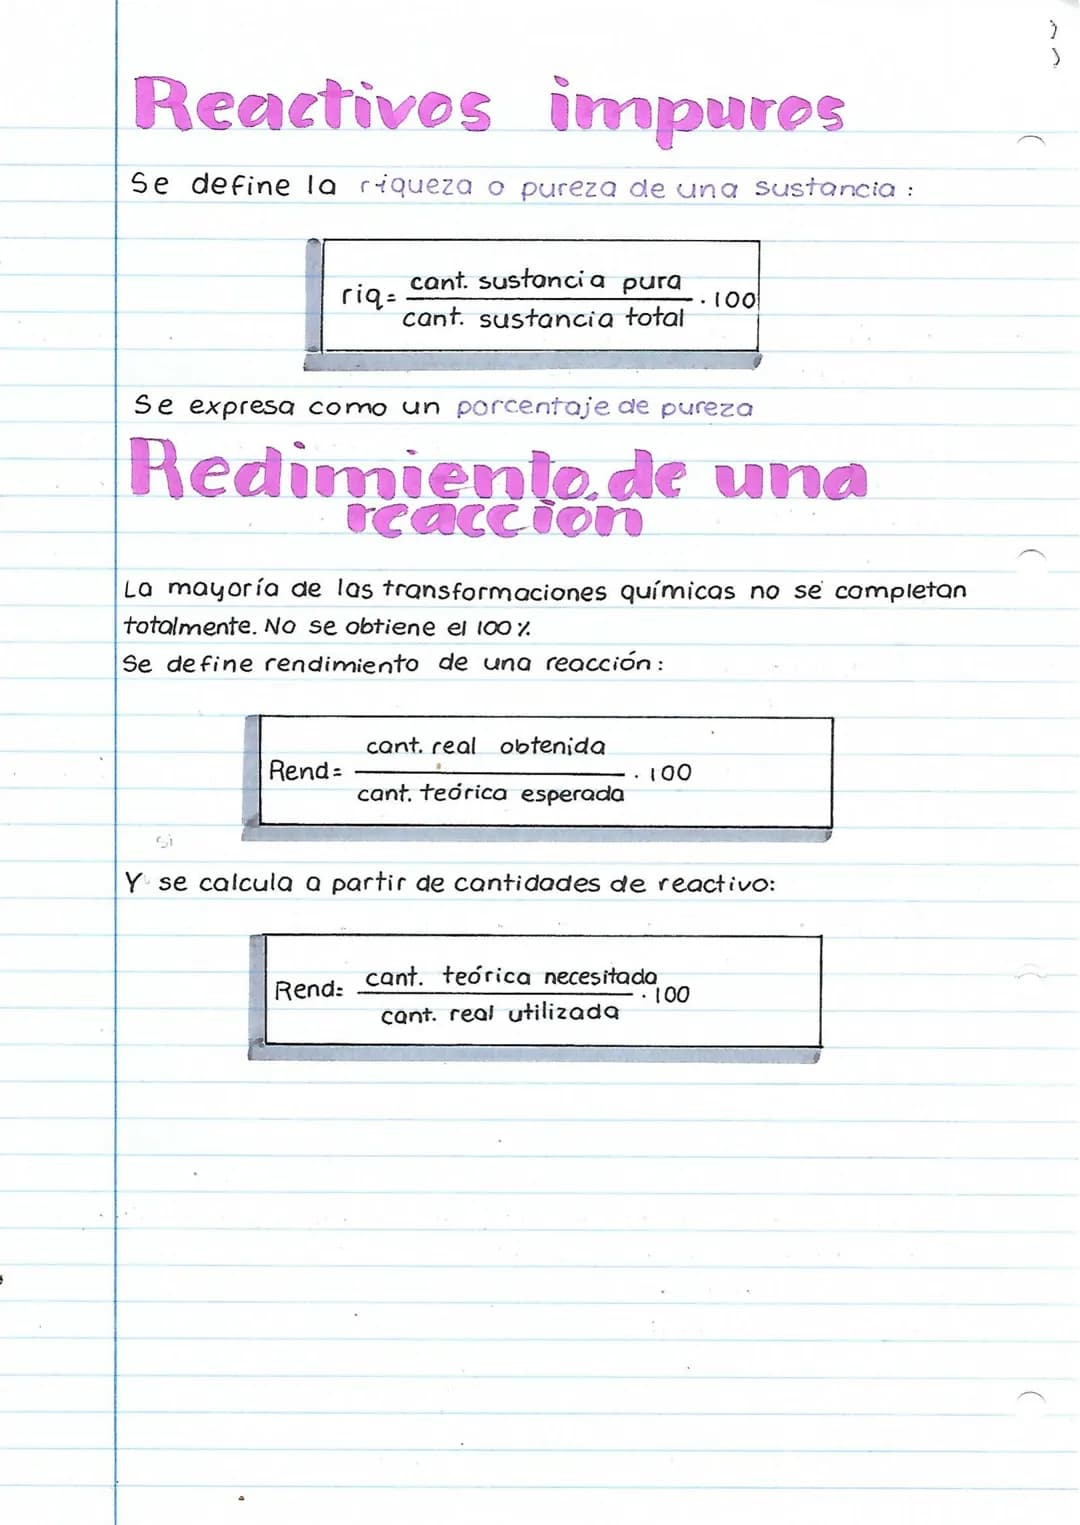 Reactivos impuros
Se define la riqueza o pureza de una sustancia :
riq= cant. sustancia pura
cant. sustancia total
. 100
Se expresa como un porcentaje de pureza
Redimiento de una
reacción
La mayoría de las transformaciones químicas no se completan
totalmente. No se obtiene el 100 %
Se define rendimiento de una reacción:
Rend= cant. real obtenida
cant. teórica esperada
. 100
si
Y se calcula a partir de cantidades de reactivo:
Rend= cant. teórica necesitada
cant. real utilizada
. 100